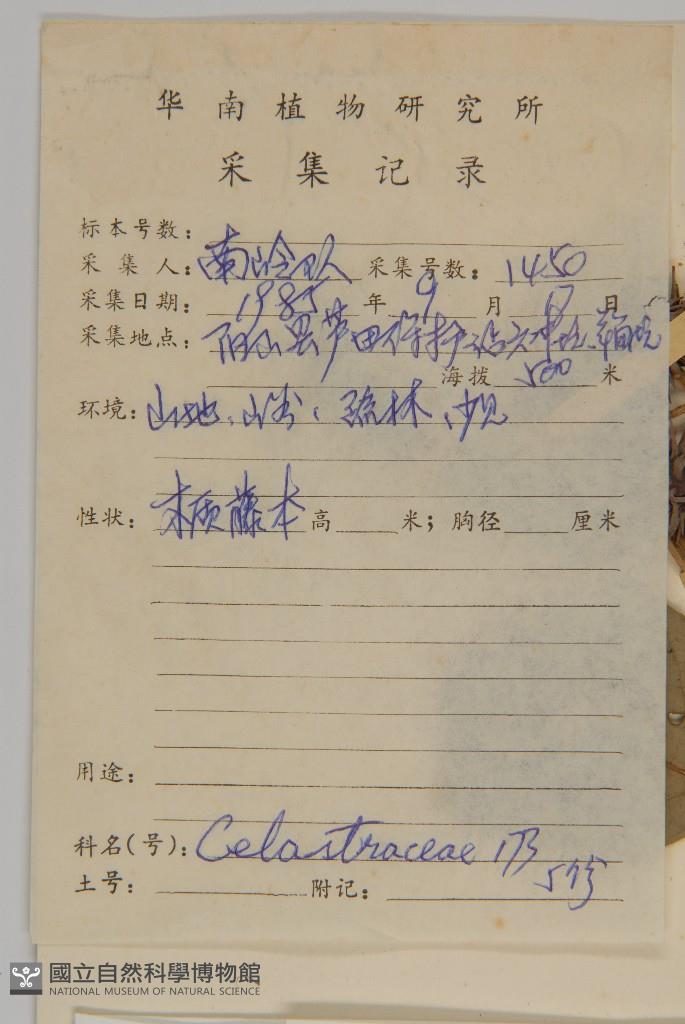 华南植物研究所
采集记录
标本号数：
采集人：南岭队 采集号数：1450
采集日期：1985年9月17日
采集地点：阳山县芦田保护
海拨500米
环境：山地、山谷、疏林、少见
性状：木质藤本 高 米；胸径 厘米
用途：
科名(号)：Celastraceae 173
土号： 附记： 5份
國立自然科學博物館
NATIONAL MUSEUM OF NATURAL SCIENCE